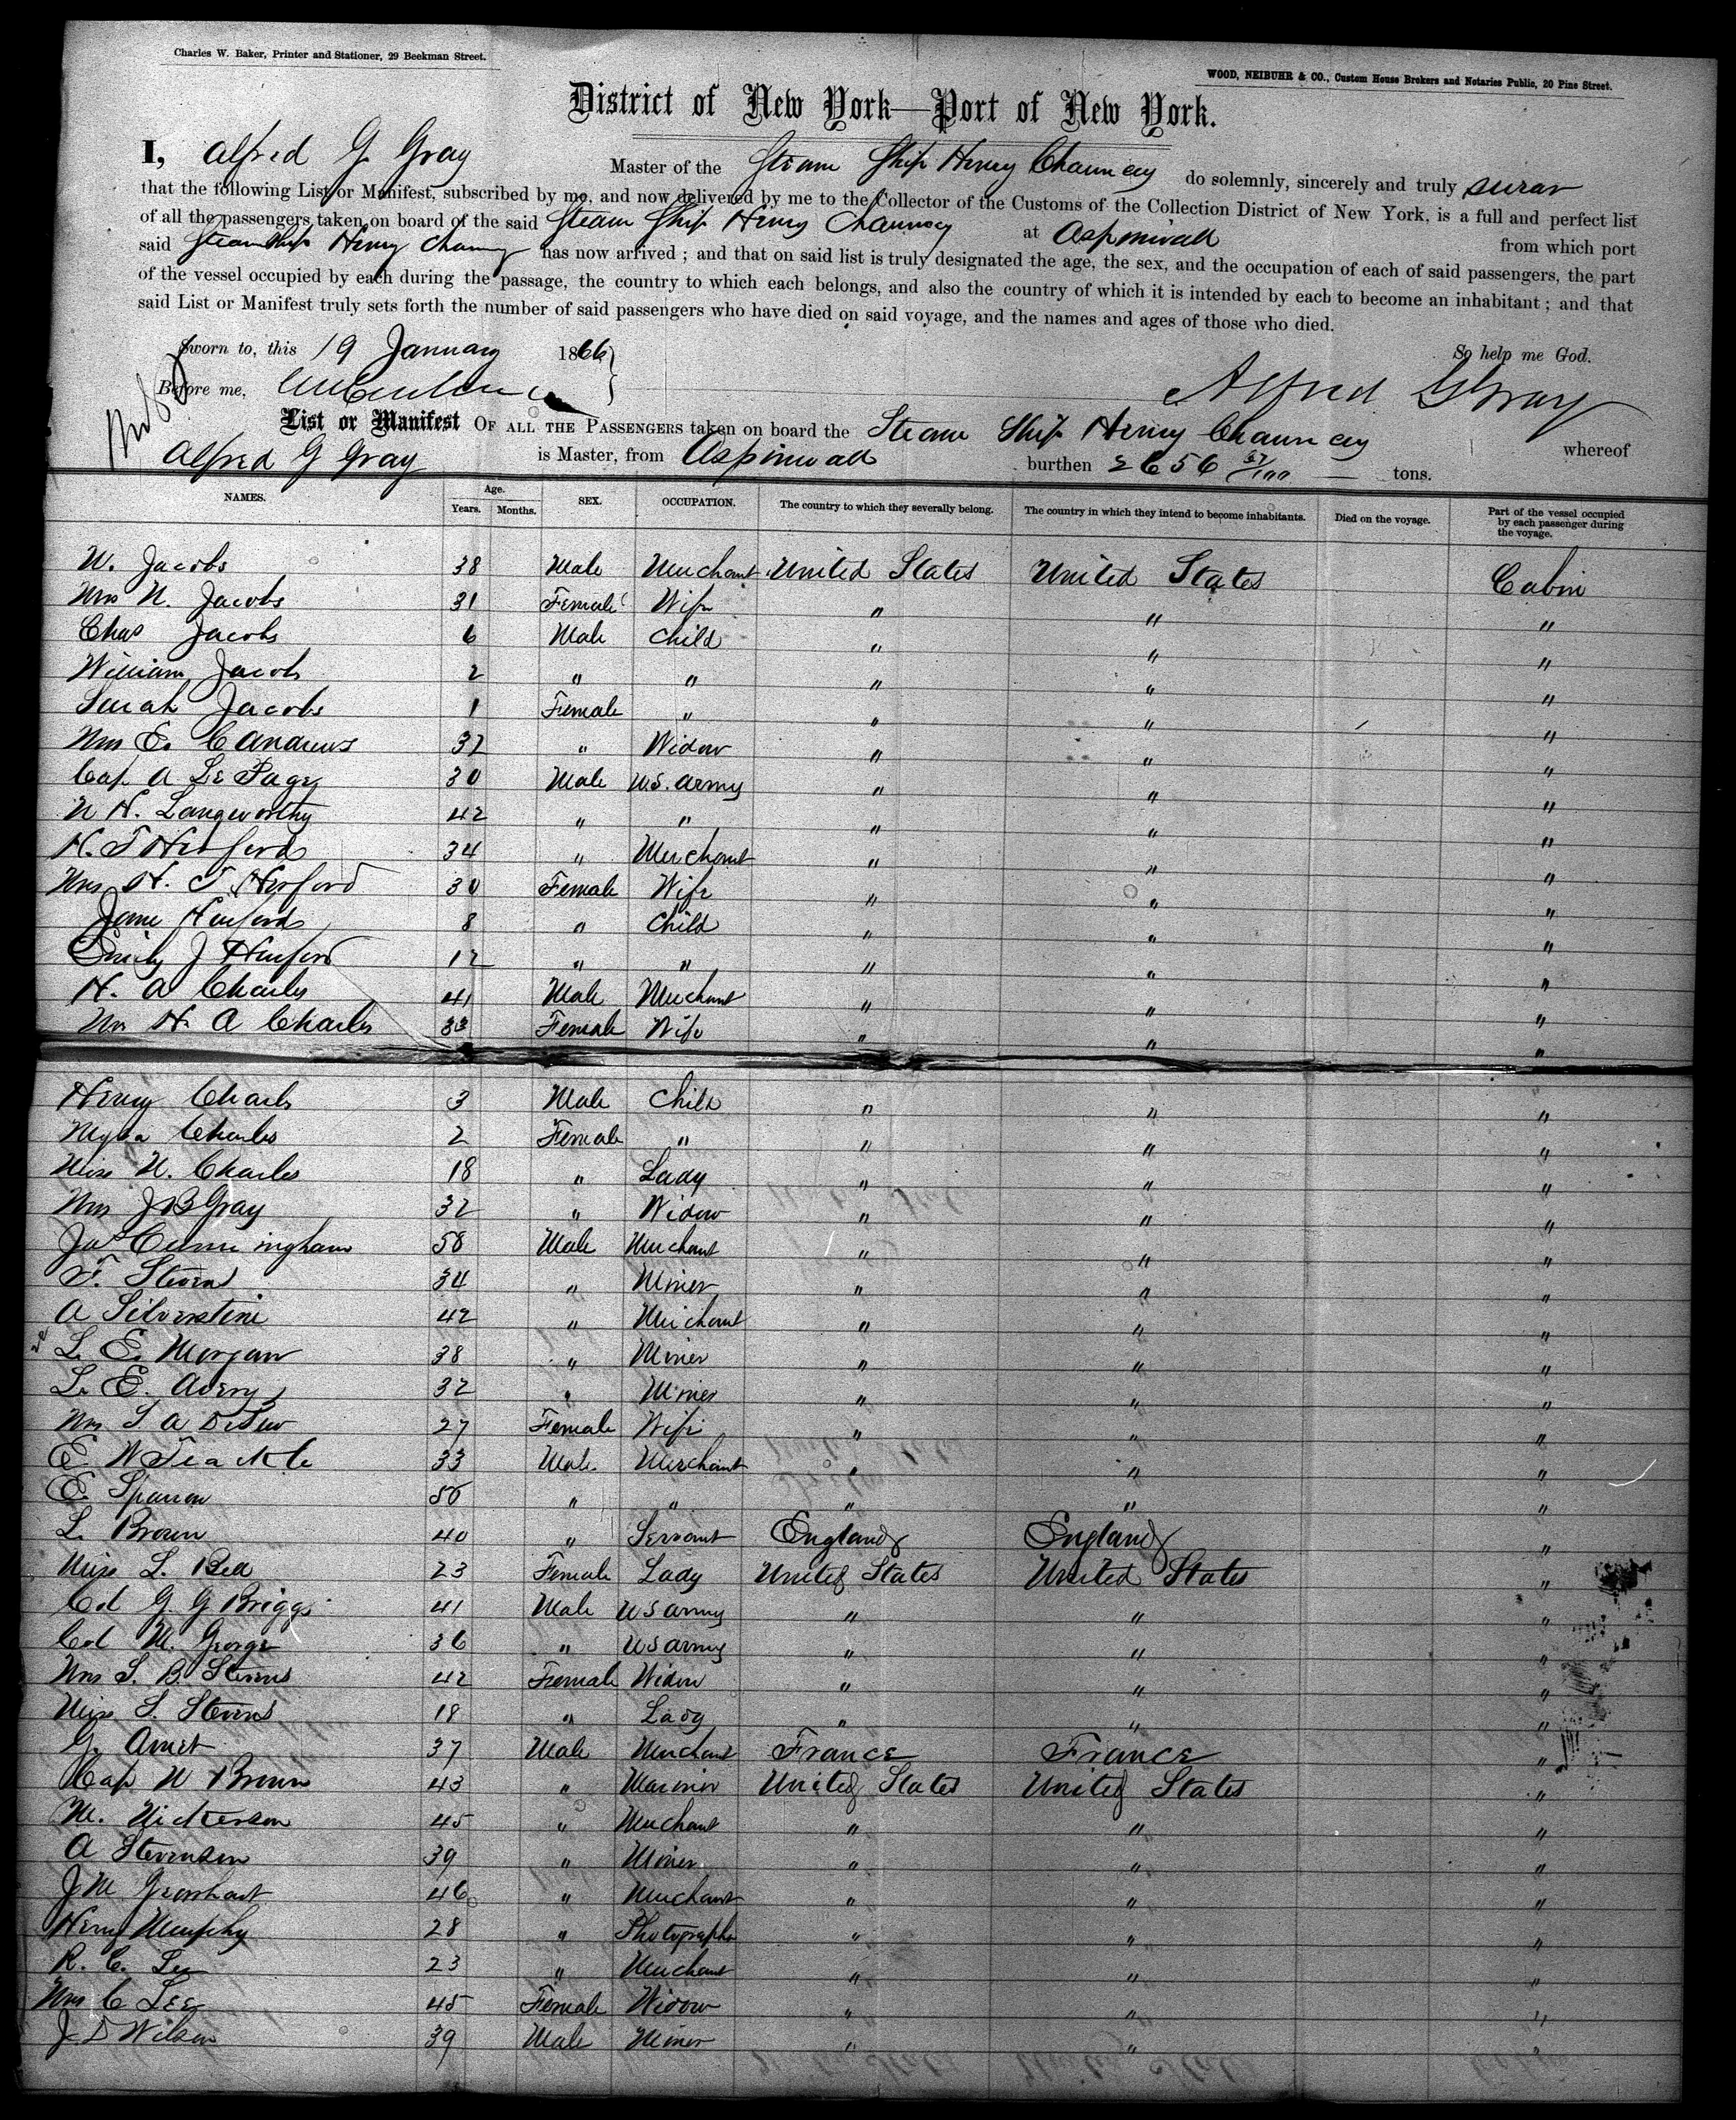 Charles W. Baker, Printer and Stationer, 29 Beekman Street.
WOOD, NEIBUHR & CO., Custom House Brokers and Notaries Public, 20 Pine Street.
District of New York—Port of New York.
I, Alfred G Gray Master of the Steam Ship Henry Chauncey do solemnly, sincerely and truly swear
that the following List or Manifest, subscribed by me, and now delivered by me to the Collector of the Customs of the Collection District of New York, is a full and perfect list
of all the passengers taken on board of the said Steam Ship Henry Chauncey at Aspinwall from which port
said Steamship Henry Chauncy has now arrived ; and that on said list is truly designated the age, the sex, and the occupation of each of said passengers, the part
of the vessel occupied by each during the passage, the country to which each belongs, and also the country of which it is intended by each to become an inhabitant ; and that
said List or Manifest truly sets forth the number of said passengers who have died on said voyage, and the names and ages of those who died.
Sworn to, this 19 January 1866 So help me God.
Before me, Alfred G Gray
List or Manifest OF ALL THE PASSENGERS taken on board the Steam Ship Henry Chauncey whereof
Alfred G Gray is Master, from Aspinwall burthen 2656 tons.
NAMES. Age. Years. Months. SEX. OCCUPATION. The country to which they severally belong. The country in which they intend to become inhabitants. Died on the voyage. Part of the vessel occupied by each passenger during the voyage.
W. Jacobs 38 Male Merchant United States United States Cabin
Mrs N. Jacobs 31 Female Wife " " "
Chas Jacobs 6 Male Child " " "
William Jacobs 2 " " " " "
Sarah Jacobs 1 Female " " " "
Mrs E. C Andrews 32 " Widow " " "
Cap. A Le Page 30 Male U.S. Army " " "
N H. Langworthy 42 " " " " "
H. T Hesford 34 " Merchant " " "
Mrs H. T Hesford 30 Female Wife " " "
Jane 8 " Child " " "
Emily J 12 " " " " "
H. A Charles 41 Male Merchant " " "
Mrs H. A Charles 33 Female Wife " " "
Henry Charles 3 Male Child " " "
Myra Charles 2 Female " " " "
Miss N. Charles 18 " Lady " " "
Mrs J B Gray 32 " Widow " " "
Jas Cunningham 58 Male Merchant " " "
F. Stevens 34 " Miner " " "
A Silverstine 42 " Merchant " " "
L. E. Morgan 38 " Miner " " "
L. E. Avery 32 " Miner " " "
Mrs S A 27 Female Wife " " "
E. W 33 Male Merchant " " "
E. Sparrow 50 " " " " "
L. Brown 40 " Servant England England "
Miss L. Bell 23 Female Lady United States United States "
Col G. G Briggs 41 Male US army " " "
Col M. George 36 " US army " " "
Mrs S. B. Stevens 42 Female Widow " " "
Miss S. Stevens 18 " Lady " " "
G. Amet 37 Male Merchant France France "
Cap W Brown 43 " Mariner United States United States "
M. Nickerson 45 " Merchant " " "
A Stevenson 39 " Miner " " "
J M Gearhart 46 " Merchant " " "
Henry Murphy 28 " Photographer " " "
R. C. Lee 23 " Merchant " " "
Mrs C Lee 45 Female Widow " " "
J D Wilson 39 Male Miner " " "